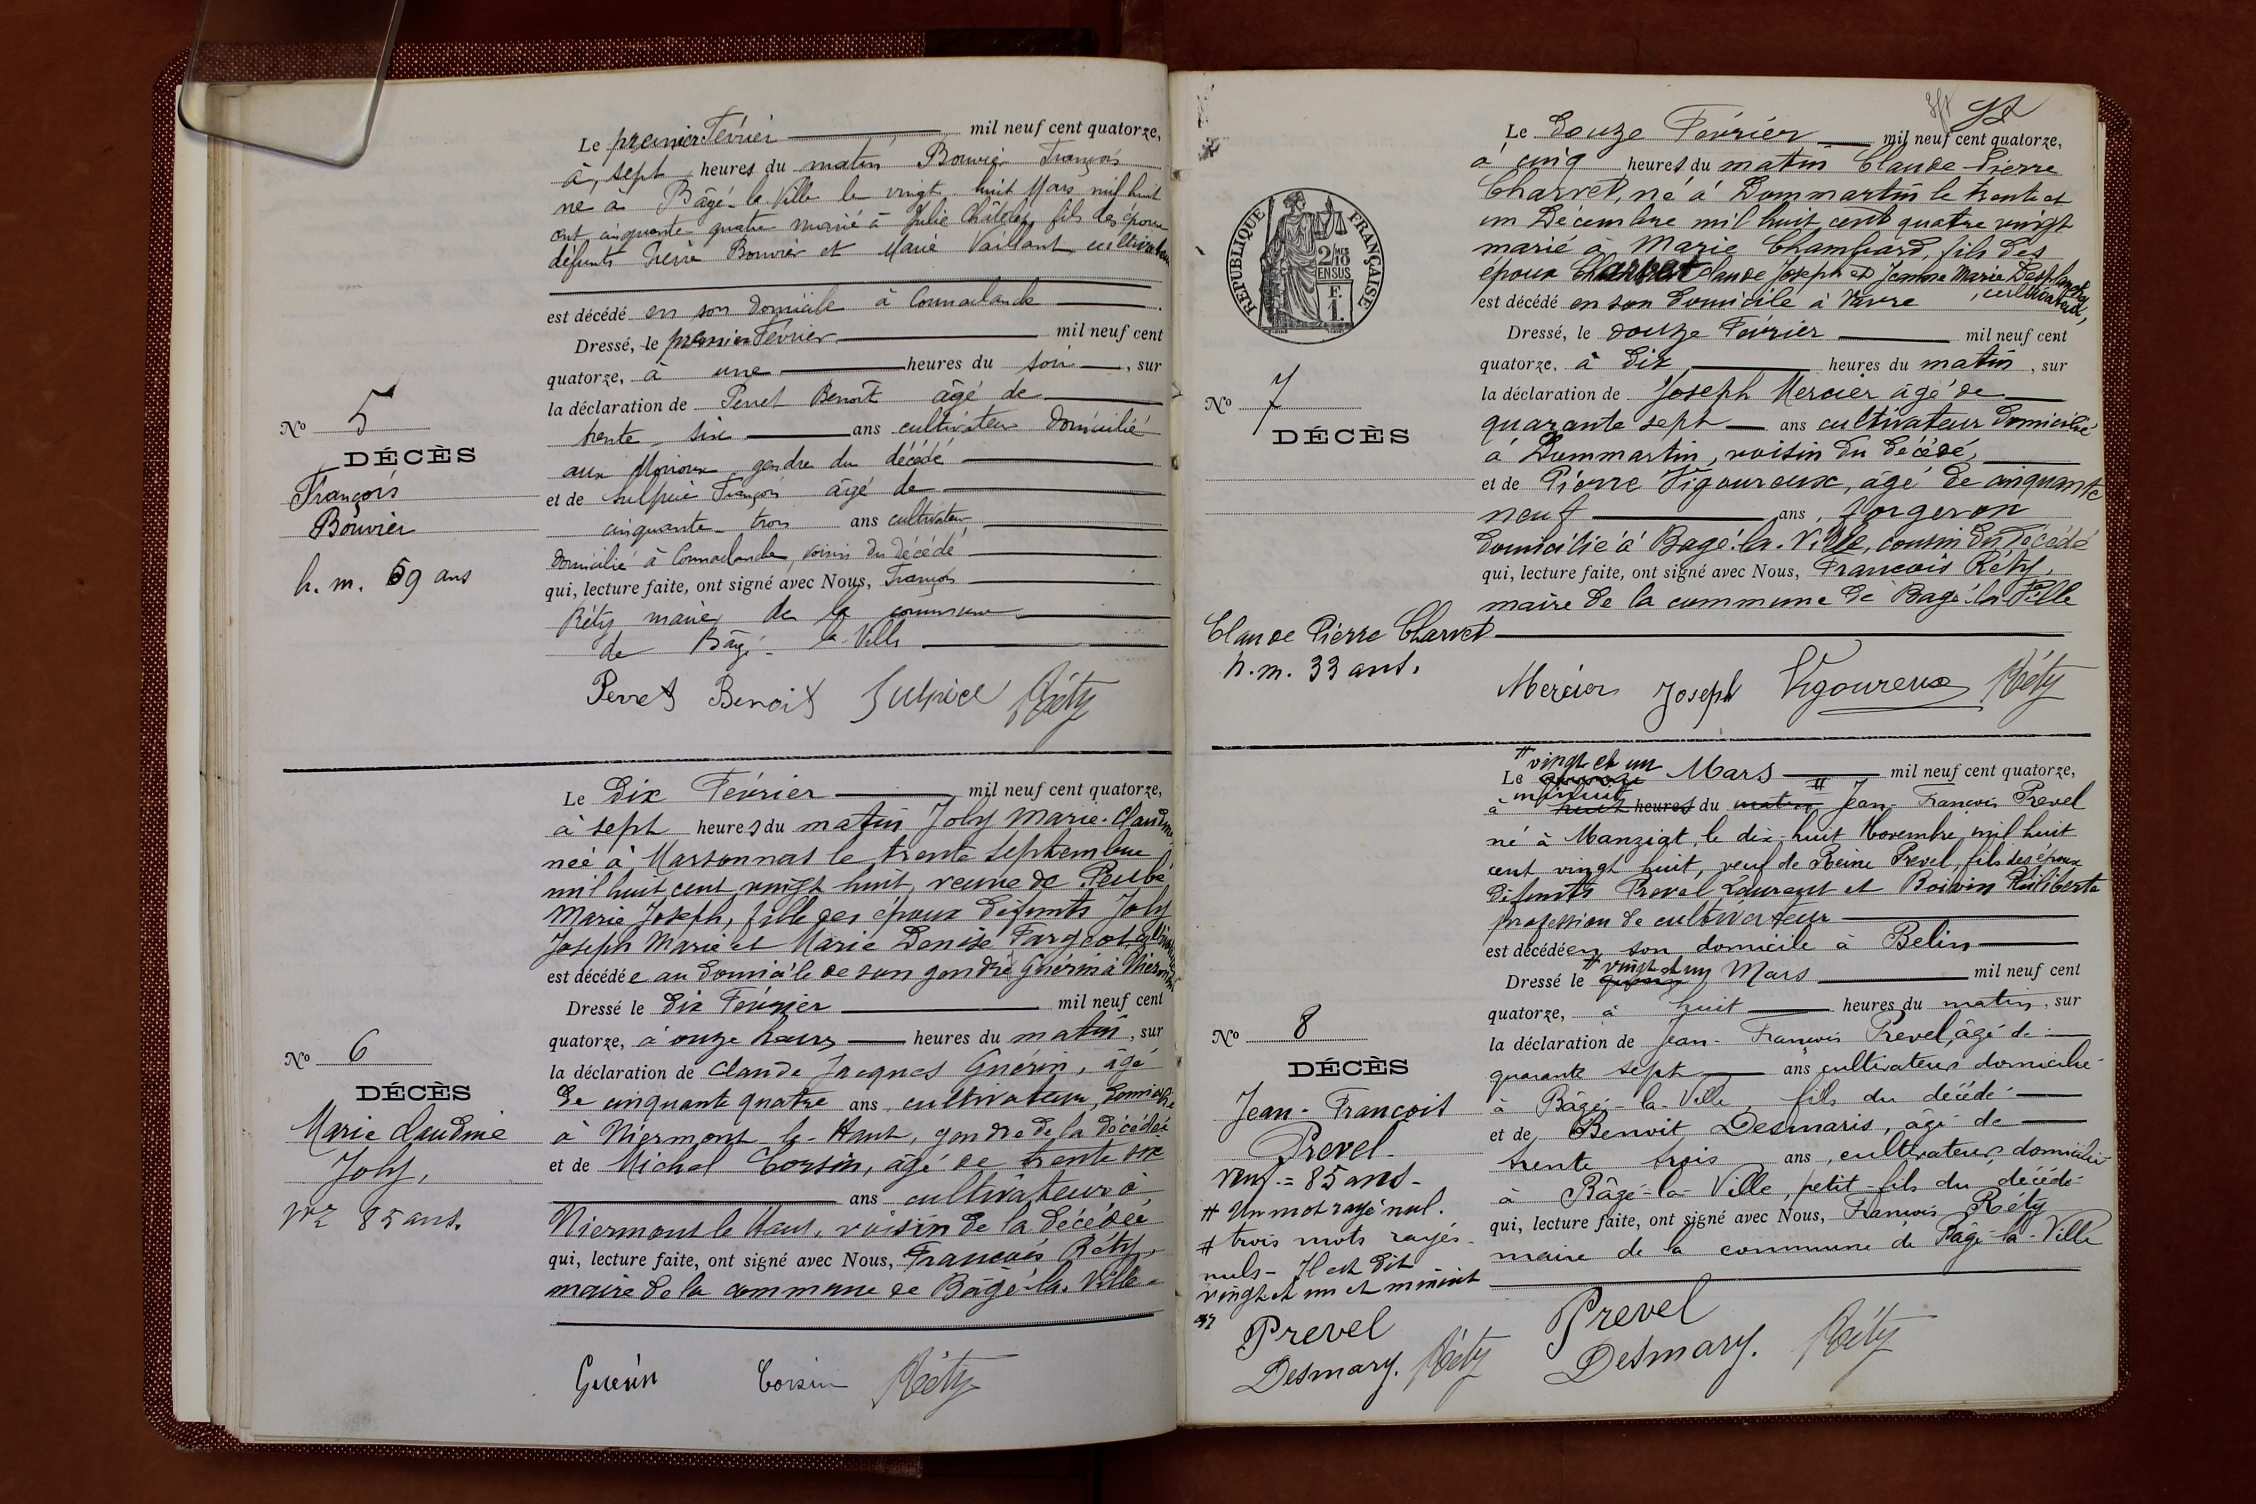 Le premier Février mil neuf cent quatorze,
à sept heures du matin Bouvier François
né à Bâgé-la-Ville le vingt huit Mars mil huit
cent cinquante quatre marié à Julie fils des époux
défunts Bouvier et Marie Vaillant cultivateur
est décédé en son domicile à
Dressé, le premier Février mil neuf cent
quatorze, à une heures du soir, sur
la déclaration de Perret Benoît âgé de
trente six ans cultivateur domicilié
aux gendre du décédé
et de Sulpice François âgé de
cinquante trois ans cultivateur
domicilié à voisin du décédé
qui, lecture faite, ont signé avec Nous, François
Réty maire de la commune
de Bâgé-la-Ville
Perret Benoit Sulpice Réty
No 5
DÉCÈS
François
Bouvier
h. m. 59 ans
Le dix Février mil neuf cent quatorze,
à sept heures du matin Joly Marie-Claudine
née à Marsonnas le trente septembre
mil huit cent vingt huit, veuve de
Marie Joseph, fille des époux défunts Joly
Joseph Marie et Marie Denise Fargeot
est décédée au domicile de son gendre Guérin à
Dressé le dix Février mil neuf cent
quatorze, à onze heures heures du matin, sur
la déclaration de Claude Jacques Guérin, âgé
de cinquante quatre ans, cultivateur, domicilié
à Niermont-le-Haut, gendre de la décédée
et de Michel Corsin, âgé de trente six
ans cultivateur à
Niermont le Haut, voisin de la décédée
qui, lecture faite, ont signé avec Nous, François Réty,
maire de la commune de Bâgé-la-Ville
Guérin Corsin Réty
No 6
DÉCÈS
Marie Claudine
Joly,
Vve 85 ans.
Le Douze Février mil neuf cent quatorze,
à cinq heures du matin Claude-Pierre
Charvet, né à Dommartin le trente et
un Décembre mil huit cent quatre vingt
marié à Marie Chambard, fils des
époux Claude Joseph et Jeanne Marie
est décédé en son domicile à Vavre, cultivateur,
Dressé, le douze Février mil neuf cent
quatorze, à dix heures du matin, sur
la déclaration de Joseph Mercier âgé de
quarante sept ans cultivateur domicilié
à Dommartin, voisin du décédé,
et de Pierre Vigoureux, âgé de cinquante
neuf ans, forgeron
domicilié à Bagé-la-Ville, cousin du décédé
qui, lecture faite, ont signé avec Nous, François Réty,
maire de la commune de Bagé-la-Ville
Mercier Joseph Vigoureux Réty
RÉPUBLIQUE FRANÇAISE
2/10
EN SUS
F.
1.
No 7
DÉCÈS
Claude Pierre Charvet
h. m. 33 ans.
# vingt et un
Le Mars mil neuf cent quatorze,
minuit
à huit heures du matin # Jean-François Prevel
né à Manziat, le dix-huit Novembre mil huit
cent vingt huit, veuf de Reine Prevel, fils des époux
défunts Prevel Laurent et Boivin Philiberte
profession de cultivateur
est décédé en son domicile à Belin
# vingt et un
Dressé le Mars mil neuf cent
quatorze, à huit heures du matin, sur
la déclaration de Jean-François Prevel, âgé de
quarante sept ans, cultivateur domicilié
à Bâgé-la-Ville fils du décédé
et de Benoit Desmaris, âgé de
trente trois ans, cultivateur, domicilié
à Bâgé-la-Ville, petit-fils du décédé
qui, lecture faite, ont signé avec Nous, François Réty
maire de la commune de Bâgé-la-Ville
Prevel
Desmary. Réty
No 8
DÉCÈS
Jean-François
Prevel
veuf = 85 ans
# Un mot rayé nul.
# trois mots rayés
nuls - Il est dit
vingt et un et minuit
Prevel
Desmary. Réty